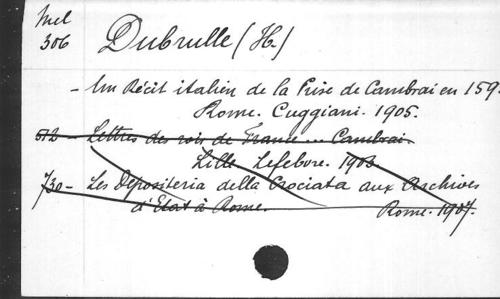 Mel
306
Dubrulle (H.)
- Un Récit italien de la Prise de Cambrai en 159
Rome. Cuggiani. 1905.
512 - Lettres des rois de France ... Cambrai.
Lille Lefebvre. 1903
730 - Les Depositeria della Crociata aux Archives
d'Etat à Rome. Rome. 1907.